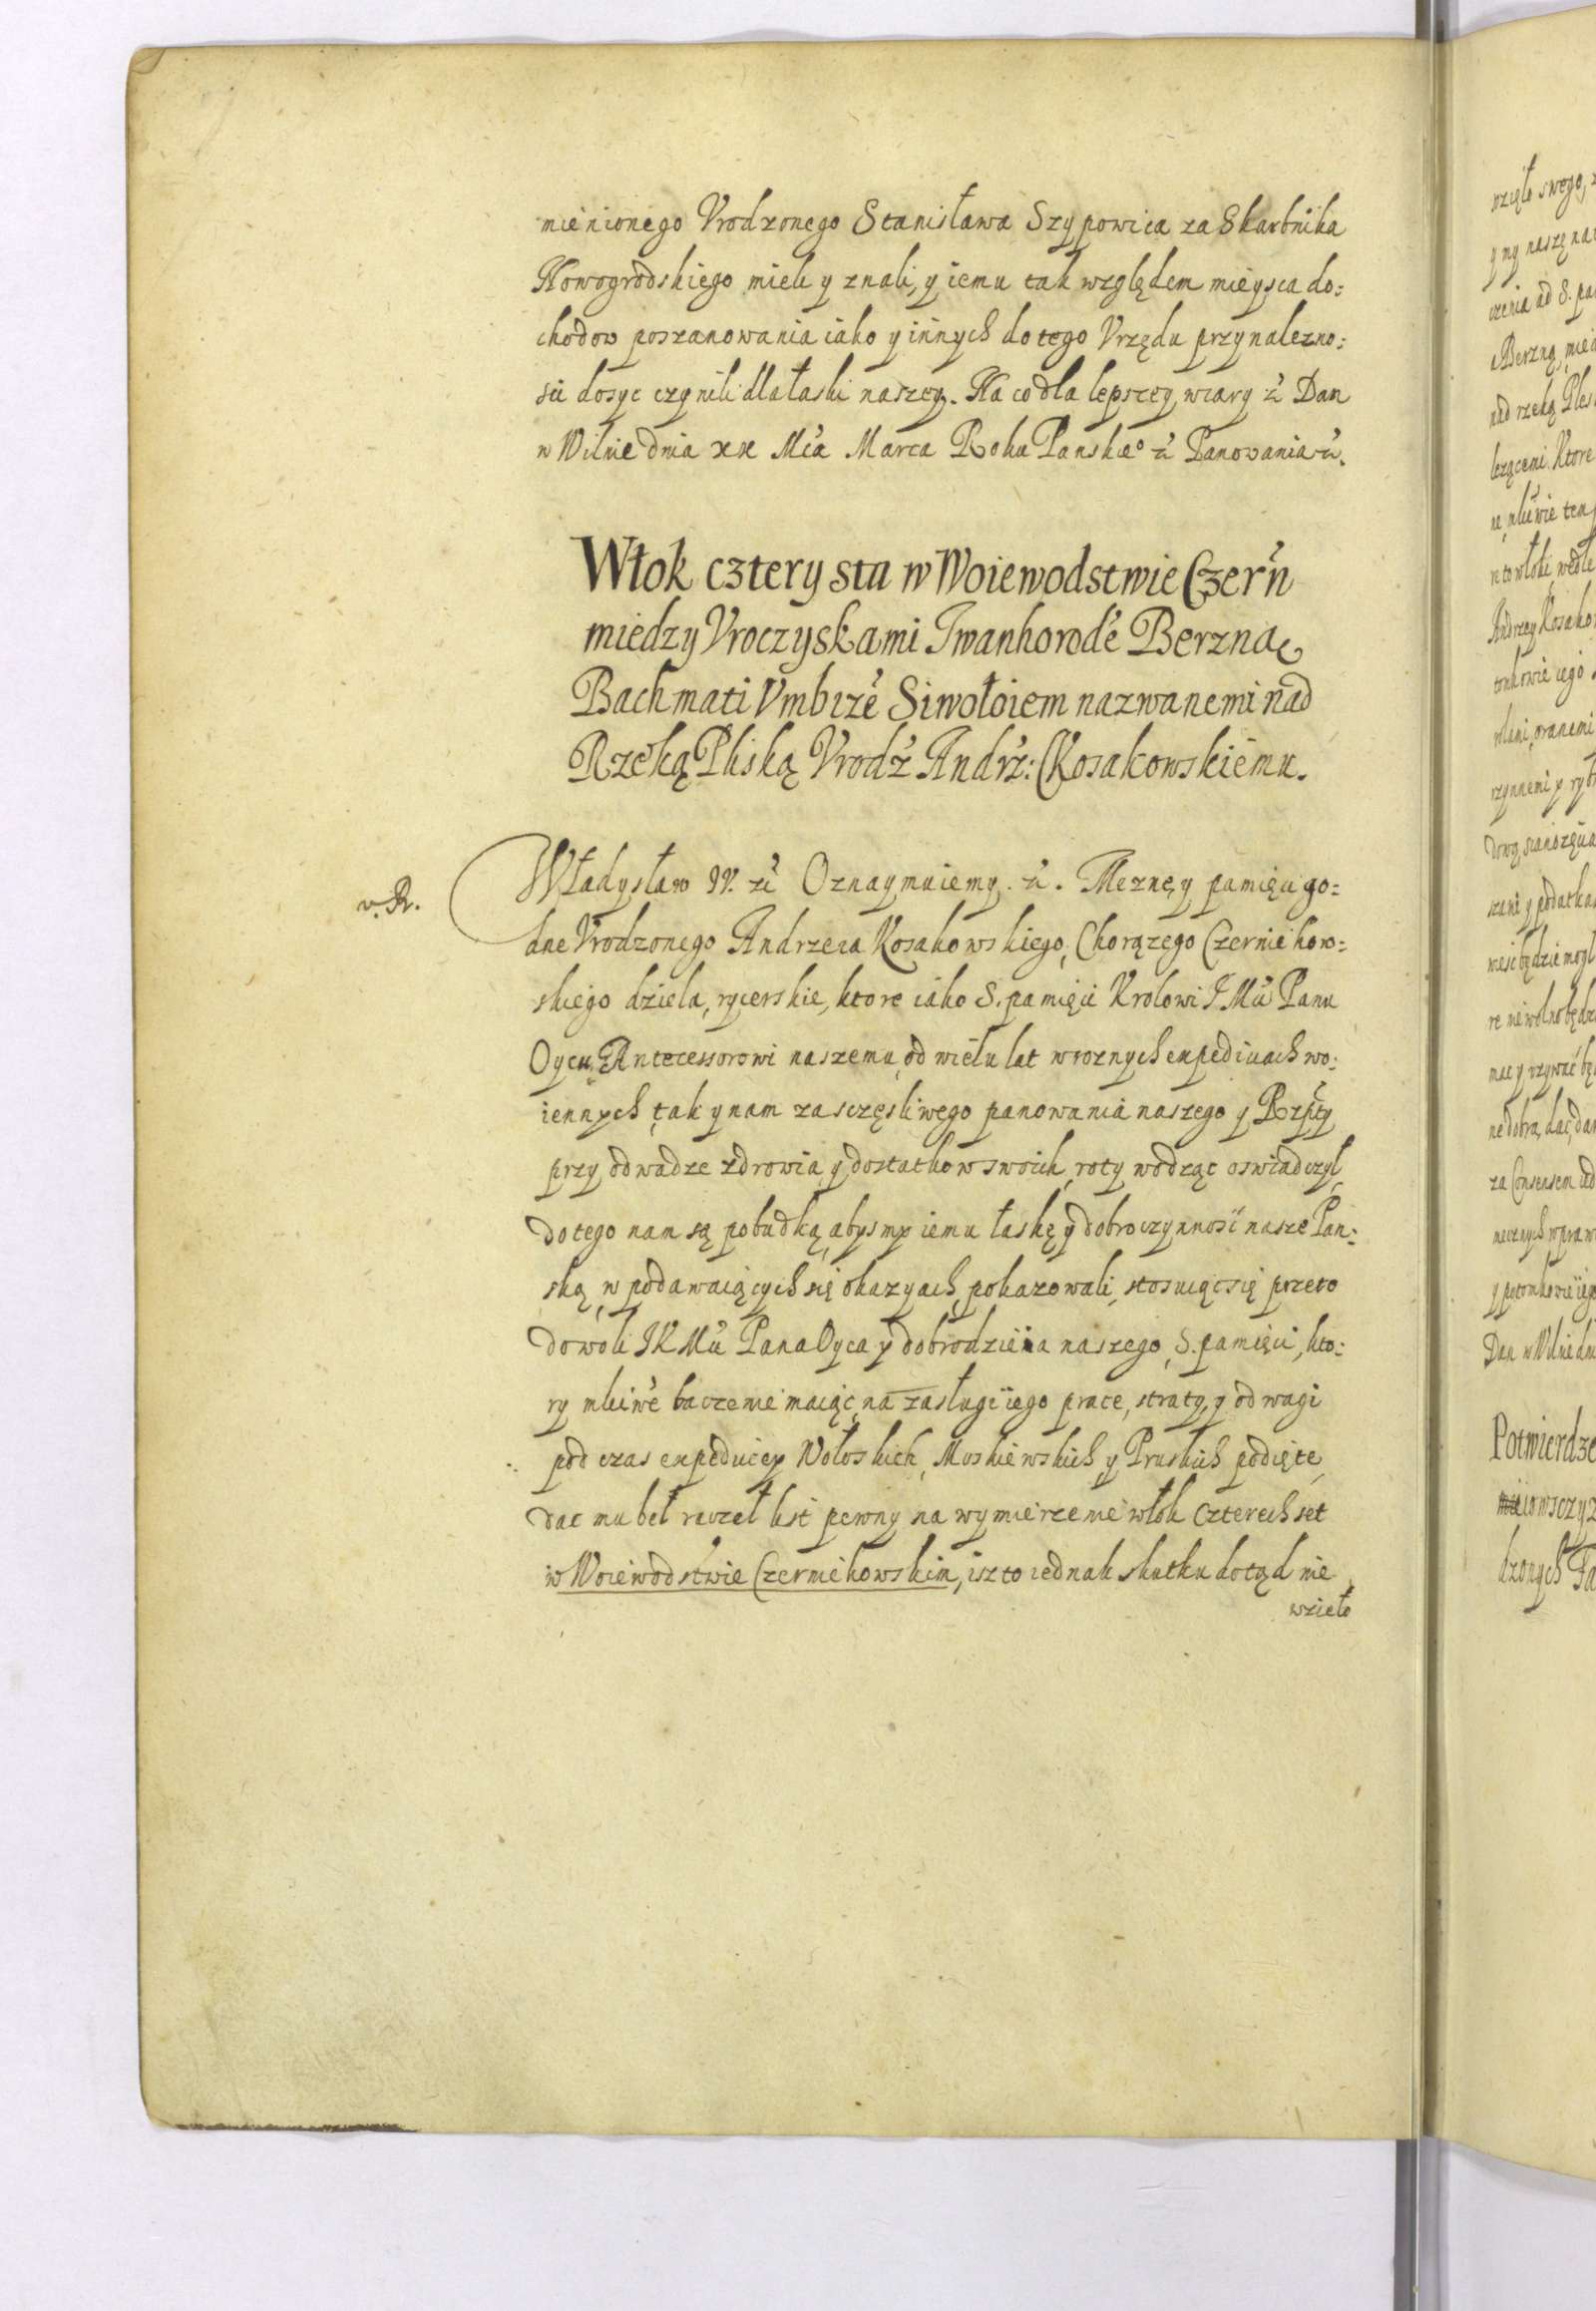 mienionego Vrodzonego Stanisława Szypowica za Skarbnika
Nowogrodskiego mieli y znali, y iemu tak względem mieysca do:
chodow poszanowania iako y innych do tego Vrzędu przynalezno:
sci dosyc czynili dla łaski naszey. Na co dla lepszey wiary ż Dan
w Wilnie dnia xx Mća Marca Roku Panskie° ż Panowania ż.
Włok cztery sta w Woiewodstwie Czerń
miedzy Vroczyskami Iwanhorodē Berzną
Bachmati Vmbizē Siwołoiem nazwanemi nad
Rzeką Pliską Vrodż Andrż: Kosakowskiemu.
v. R.
Władysław IV. żc Oznaymuiemy. ż. Mezne, y pamięci go:
dne Vrodzonego Andrzeia Kosakowskiego, Chorązego Czerniehow:
skiego dziela, rycerskie, ktore iako S. pamięci Krolowi I Mći Panu
Oycu, Antecessorowi naszemu, od wielu lat w roznych expediciach wo:
iennych, tak y nam za sczęsliwego panowania naszego y Rzpty
przy odwadze zdrowia, y dostatkow swoich, roty wodząc oswiadczył,
do tego nam są pobudką, abysmy iemu łaskę y dobroczynnosć nasze Pan:
ską, w podawaiących się okazyach, pokazowali, stosuiąc się przeto
do woli IK Mći Pana Oyca y dobrodzieia naszego, S. pamięci, kto:
ry młćiwē baczenie maiąc, na zasługi iego prace, straty, y odwagi
pod czas expediciey Wołoskich, Moskiewskich y Pruskich podięte,
dac mu beł raczeł list pewny na wymierzenie włok czterech set
w Woiewodstwie Czerniehowskim, isz to iednak skutku dotąd nie
wzieło
wzięło swego,
y my naszę
czenia od S.
Berzną,
nad rzeką
lezącemi. Ktore
re to włoki
Andrzey
oranemi
szani y podatka
re nie wolno
mac y uzywać
ne dobra, dac,
za Consensem
Dan w Wilnie
Potwierdze
dzonych